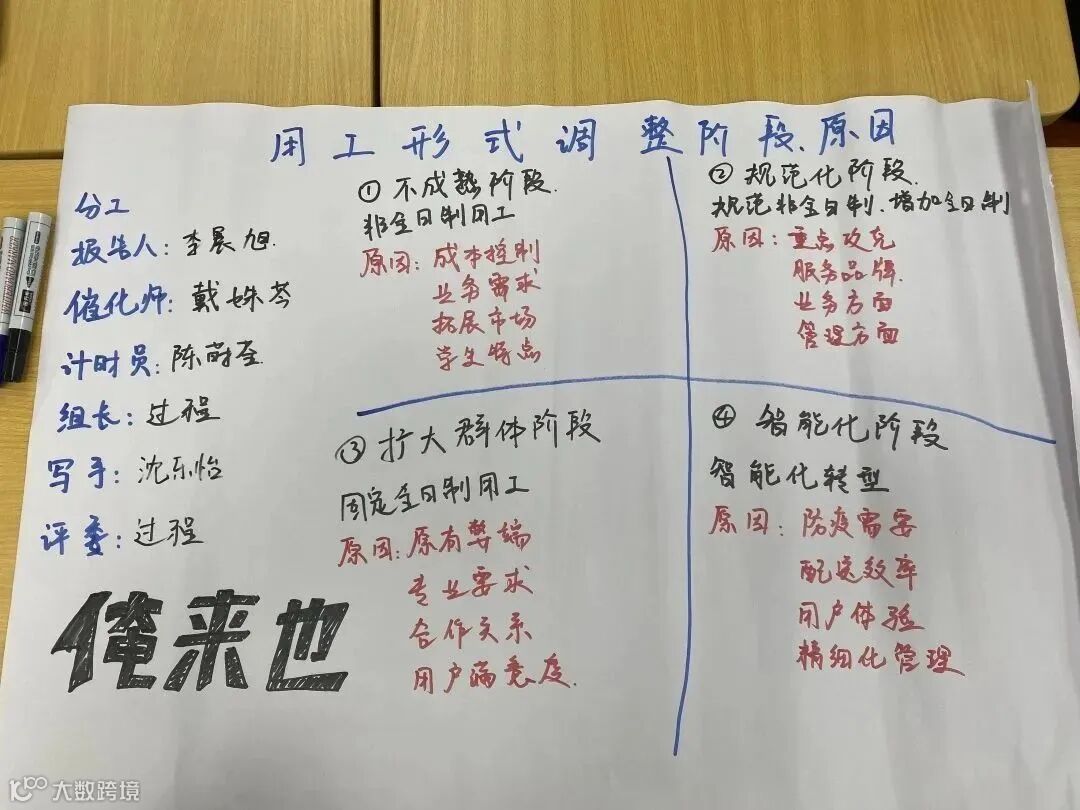 用工形式调整阶段、原因
分工
报告人：李晨旭
催化师：戴姝芩
计时员：陈蔚荃
组长：过程
写手：沈乐怡
评委：过程
俺来也
① 不成熟阶段
非全日制用工
原因：成本控制
业务需求
拓展市场
学生特点
② 规范化阶段
规范非全日制、增加全日制
原因：重点攻克
服务品牌
业务方面
管理方面
③ 扩大群体阶段
固定全日制用工
原因：原有弊端
专业要求
合作关系
用户满意度
④ 智能化阶段
智能化转型
原因：防疫需要
配送效率
用户体验
精细化管理
大数跨境